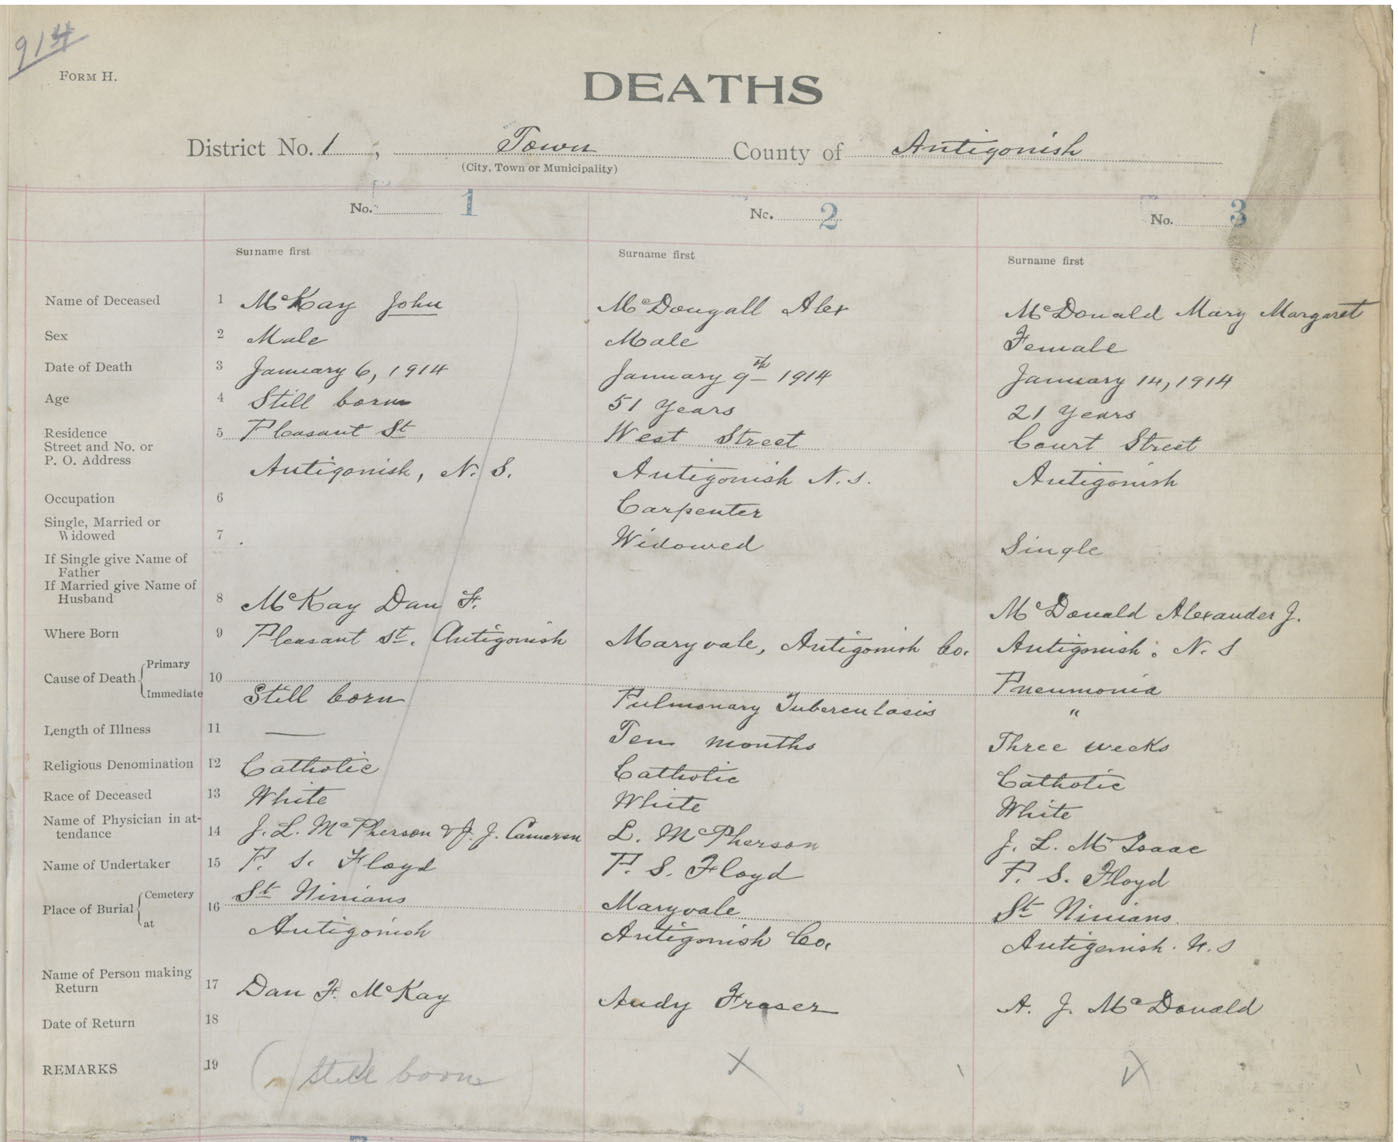 914
FORM H.
DEATHS
District No. 1, Town County of Antigonish
(City, Town or Municipality)
No. 1 No. 2 No. 3
Surname first Surname first Surname first
Name of Deceased 1 McKay John McDougall Alex McDonald Mary Margaret
Sex 2 Male Male Female
Date of Death 3 January 6, 1914 January 9th 1914 January 14, 1914
Age 4 Still born 51 Years 21 Years
Residence
Street and No. or 5 Pleasant St West Street Court Street
P. O. Address Antigonish, N. S. Antigonish N. S. Antigonish
Occupation 6 Carpenter
Single, Married or
Widowed 7 Widowed Single
If Single give Name of
Father
If Married give Name of
Husband 8 McKay Dan F. McDonald Alexander J.
Where Born 9 Pleasant St. Antigonish Maryvale, Antigonish Co. Antigonish, N. S
Cause of Death Primary 10 Pneumonia
Immediate Still born Pulmonary Tuberculasis "
Length of Illness 11 — Ten months Three weeks
Religious Denomination 12 Catholic Catholic Catholic
Race of Deceased 13 White White White
Name of Physician in at-
tendance 14 J. L. McPherson & J. J. Cameron L. McPherson J. L. McIsaac
Name of Undertaker 15 P. S. Floyd P. S. Floyd P. S. Floyd
Place of Burial Cemetery 16 St Ninians Maryvale St Ninians
at Antigonish Antigonish Co. Antigonish. N. S
Name of Person making
Return 17 Dan F. McKay Andy Fraser A. J. McDonald
Date of Return 18
REMARKS 19 (Still born) X